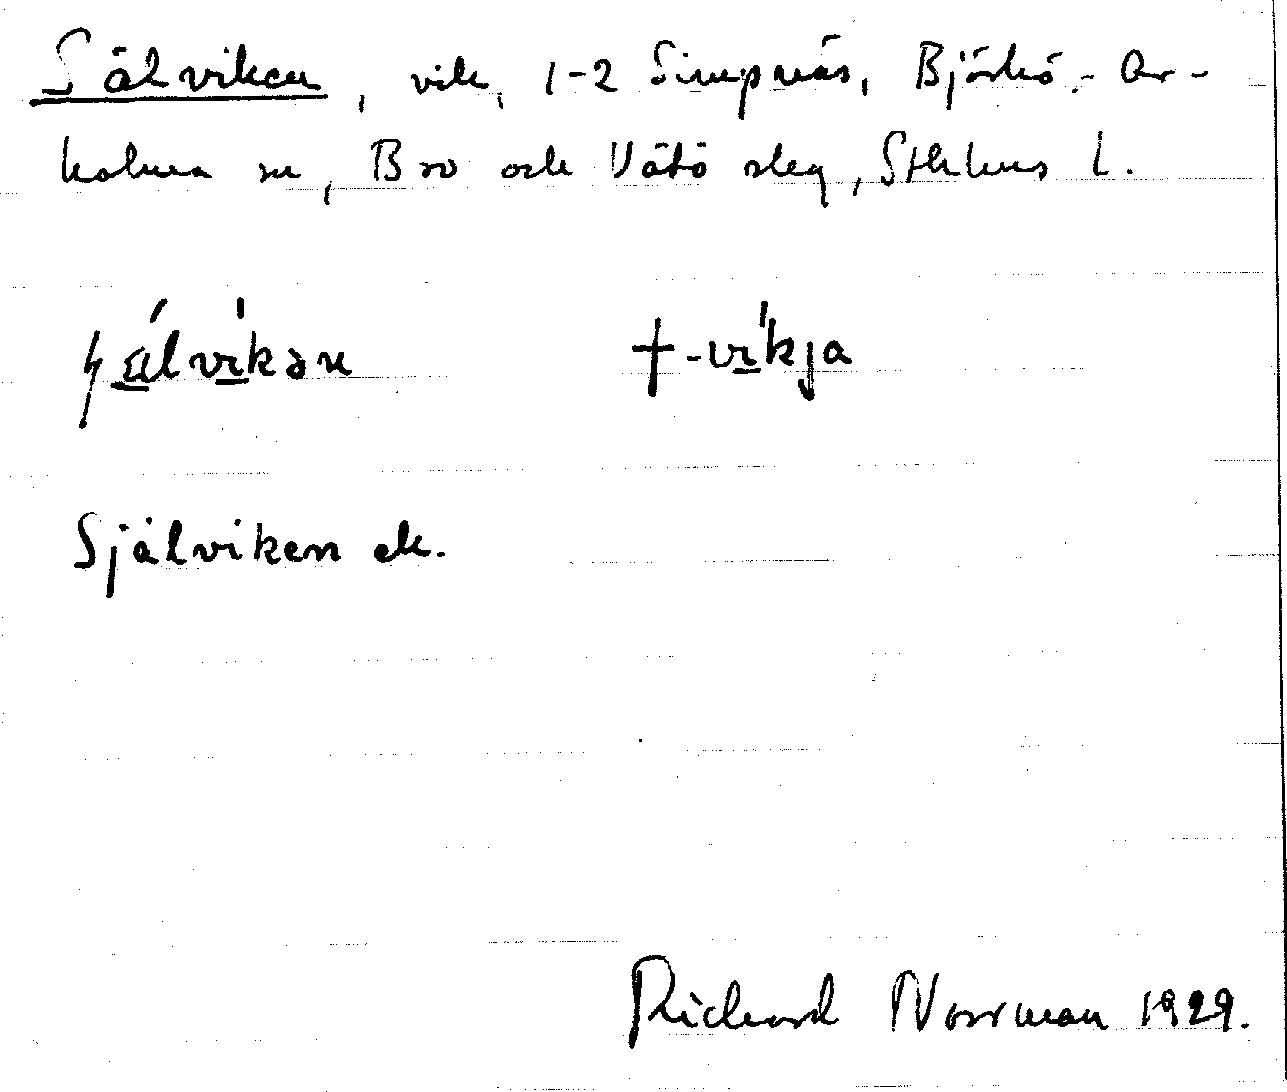 Sälviken, vik, 1-2 Simpnäs, Björkö-Ar-
holma sn, Bro och Vätö sleg, Sthlms l.
sälvíkən †-víkja
Själviken ek.
Richard Norrman 1929.